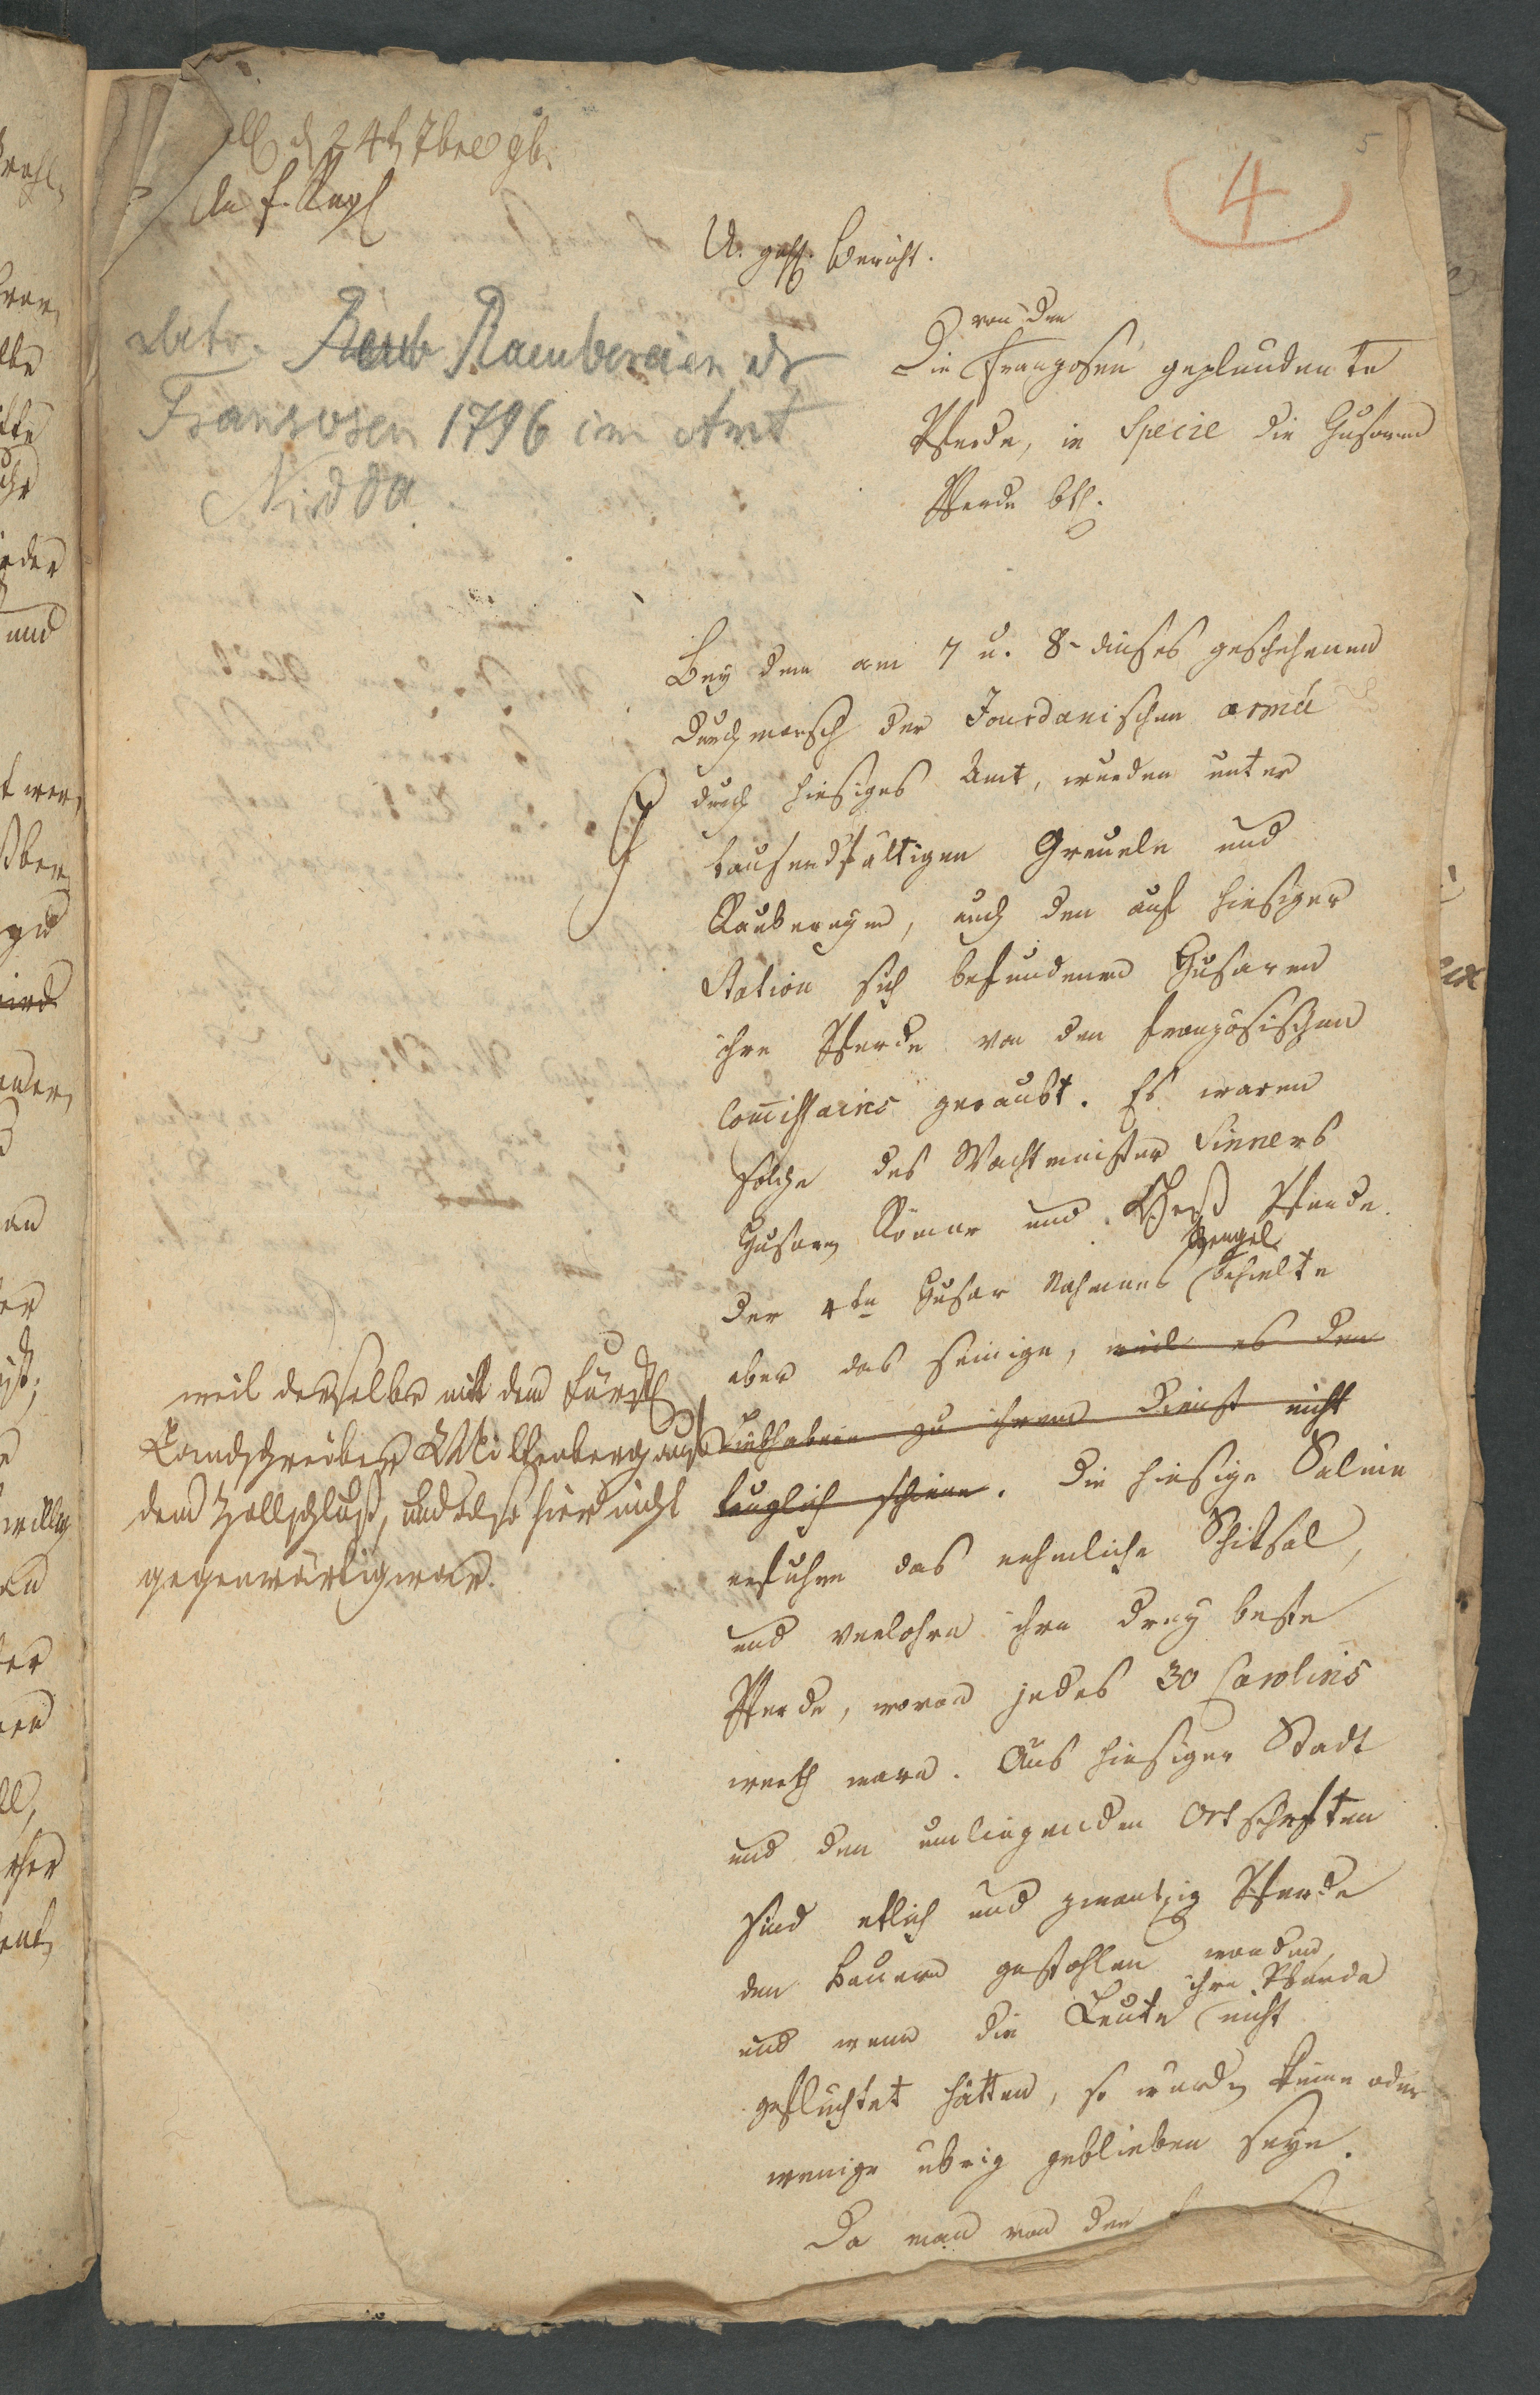 d 24t 7bre 96.
An f. Reg
4
5
U. gehs. Bericht.
betr. Raub Raubereien dr
Franzosen 1796 im Amt
Nidda
von den
Die Franzosen geplunderte
Pferde, in Specie die Husaren
Pferde btr.
Bey dem am 7 u. 8- dieses geschehenen
Durchmarsch der Jourdanischen armée
durch hiesiges Amt, wurden unter
tausendfältigen Greueln und
Raubereyen, auch den auf hiesiger
Station sich befundenen Husaren
ihre Pferde von den französischen
Commissaires geraubt. Es waren
solche des Wachtmeister Sinners
Husaren Römer und Heß Pferde.
Der 4te Husar Nahmens Wengel behielte
aber das seinige, weil es den
Liebhabern zu ihrem Dienst nicht
tauglich schiene. Die hiesige Saline
erfuhre das nehmliche Schiksal,
und verlohre ihre drey beste
Pferde, wovon jedes 30 Carolins
werth waren. Aus hiesiger Stadt
und den umliegenden Ortschften
sind etlich und zwantzig Pferde
den Bauern gestohlen worden,
und wenn die Leute ihre Pferde nicht
gefluchtet hätten, so wurden keine oder
wenige ubrig geblieben seyn.
Da man von den
weil derselbe mit dem Fürstl
Landschreiber Miltenberg auf
dem Hollschluß, und also hier nicht
gegenwärtig war.